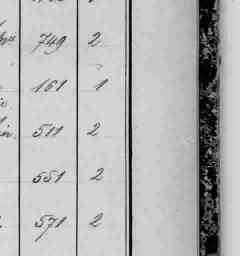 749 2
161 1
511 2
551 2
571 2